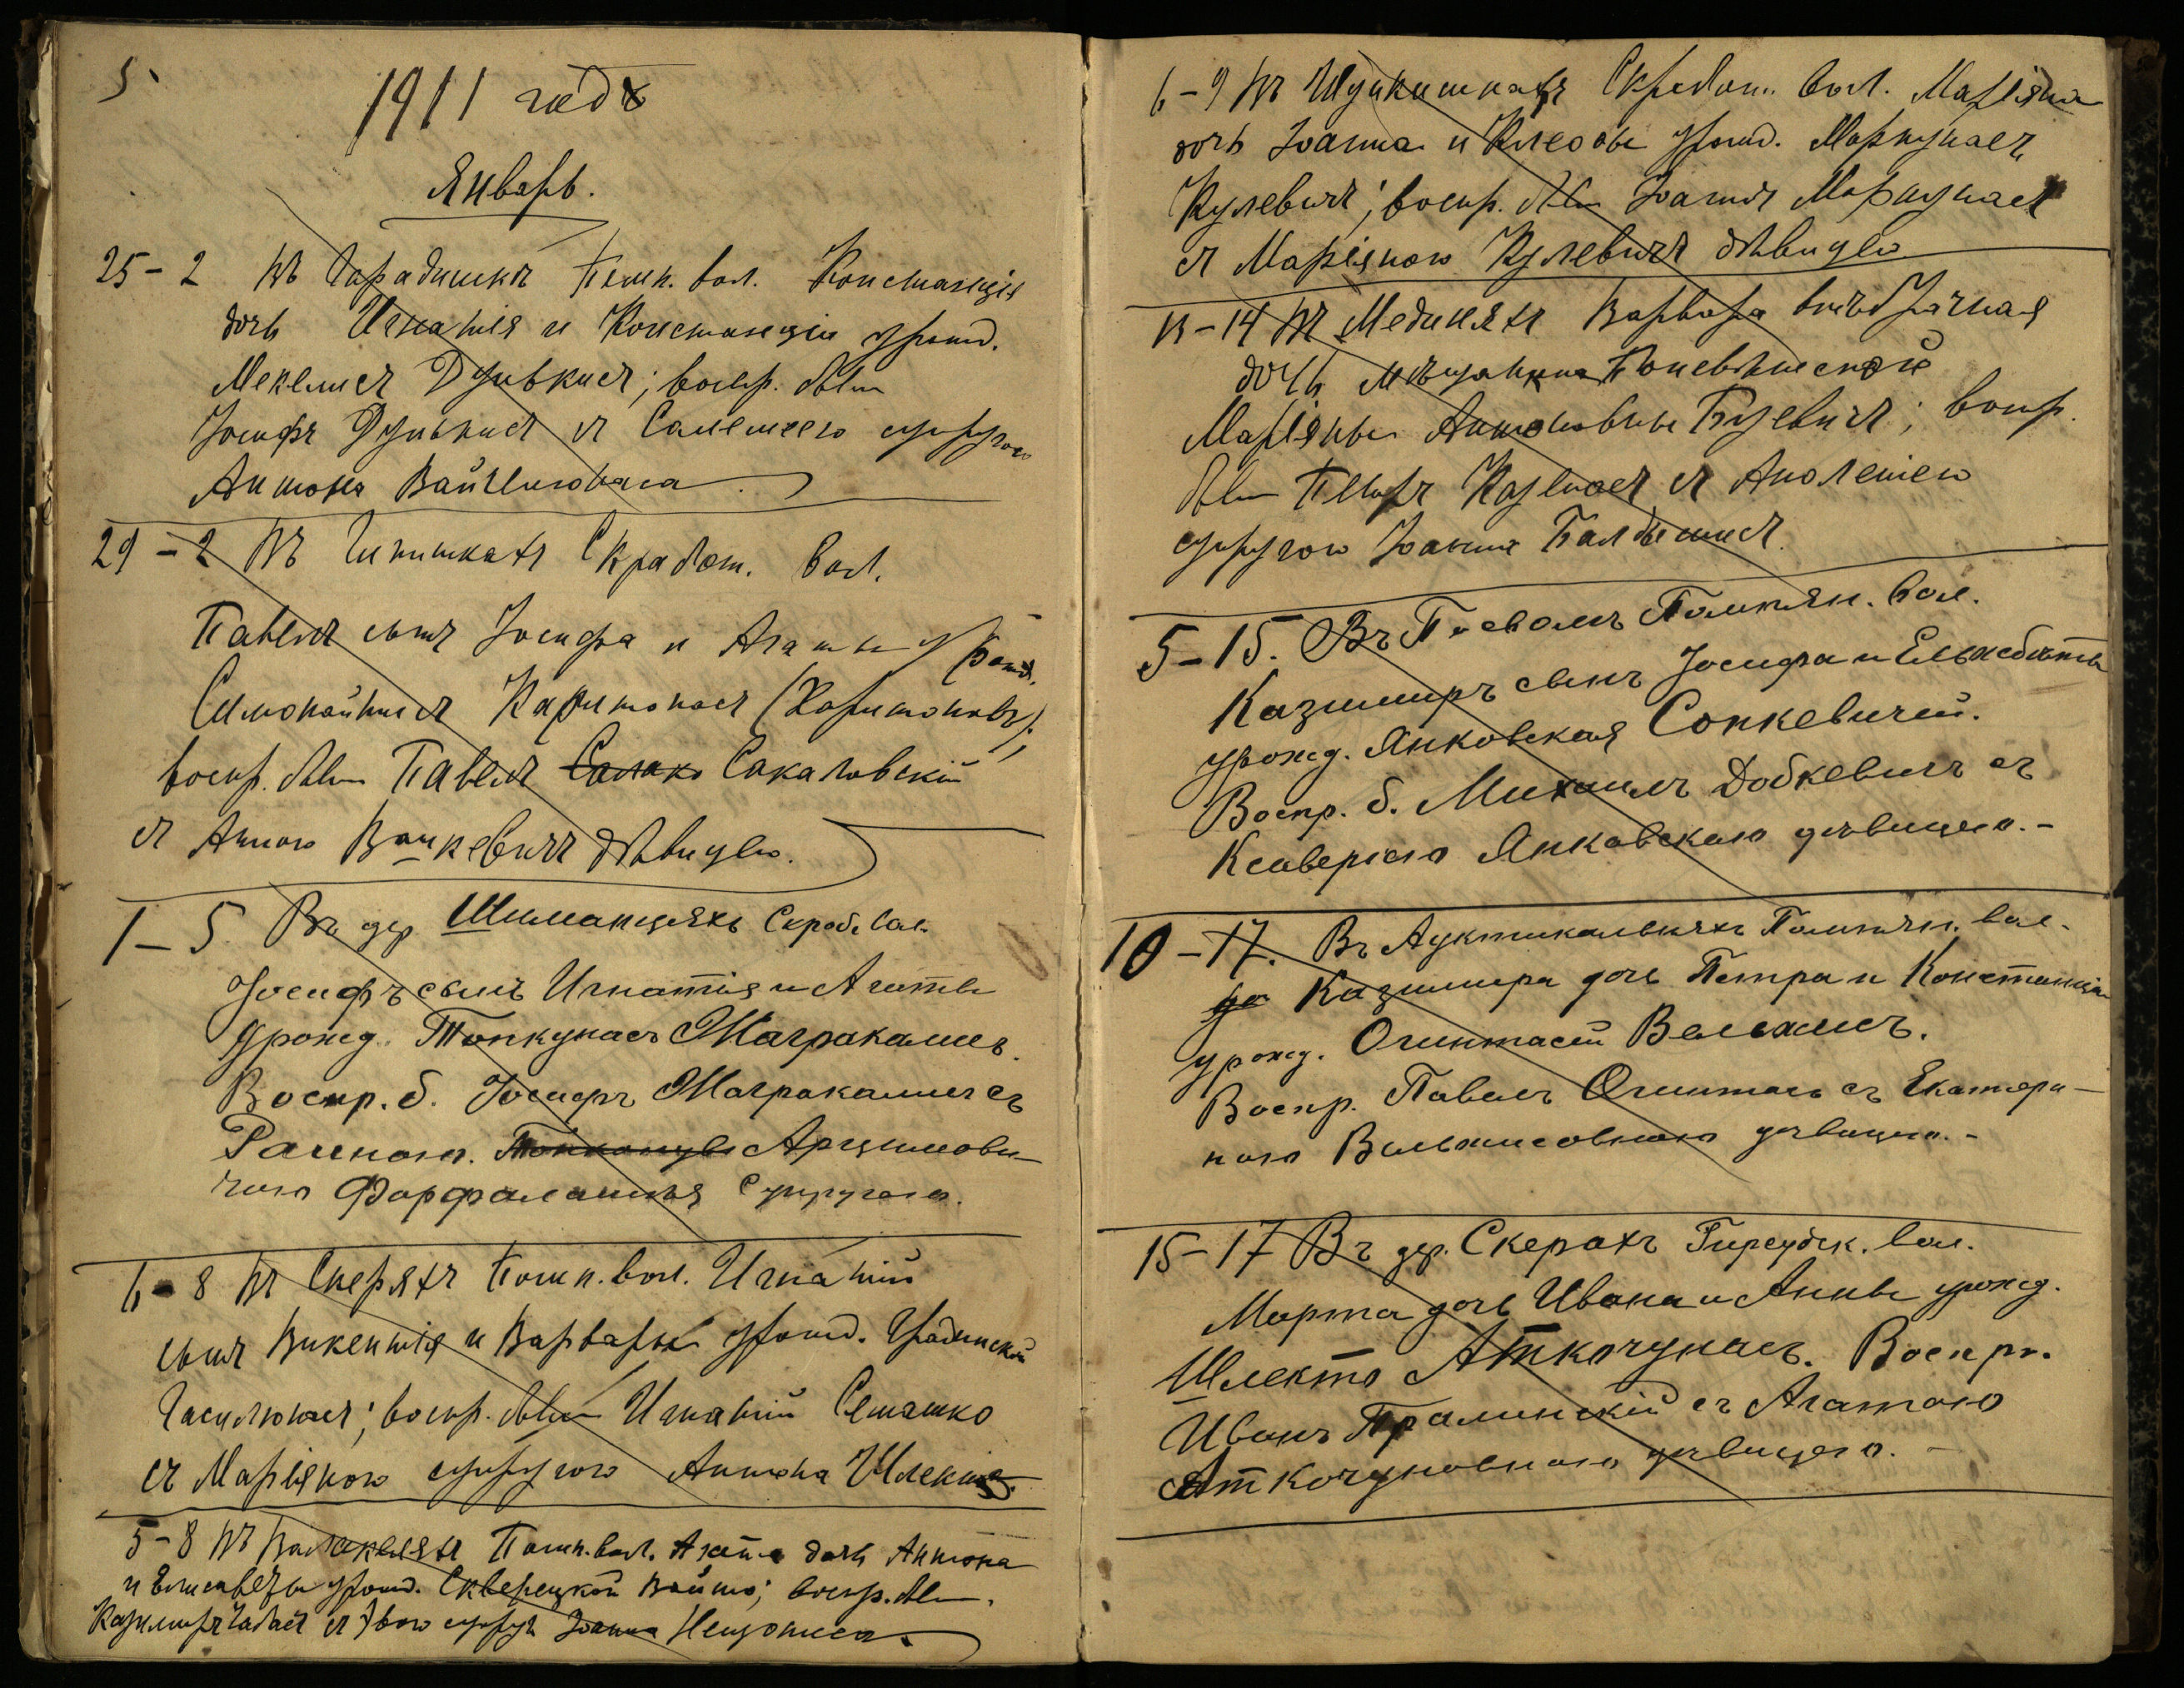 5
1911 годъ
Январь.
25 - 2 Въ Гарадишкѣ Помп. вол. Констанція
дочь Игнатія и Констанціи урожд.
Мекешисъ Дзивкисъ; воспр. были
Іосифъ Дзивкисъ съ Саломеею супругою
Антона Вайчюнаса.
29 - 2 Въ Скработ. вол.
Павелъ сынъ Іосифа и Агаты урожд.
Симонайтисъ Каритонасъ (Харитоновъ);
воспр. были Павелъ Сакаловскій
съ Анною Вашкевичъ дѣвицею.
1 - 5 Въ дер. Шиманцяхъ Скроб. вол.
Іосифъ сынъ Игнатія и Агаты
урожд. Тонкунасъ Матракалисъ.
Воспр. б. Іосифъ Матракалисъ съ
Раиною. Арцимови-
чою супругою.
6 - 8 Въ Скерахъ Помп. вол. Игнатій
сынъ Викентія и Варвары урожд. Градинской
Часилюнасъ; воспр. были Игнатій Семашко
съ Маріяною супругою Антона Шлекиса.
5 - 8 Въ Помп. вол. Агата дочь Антона
и Елисаветы урожд. Скверецкой Войто; воспр. были
Казимиръ съ Евою супруг. Іоанна
6 - 9 Въ Скробот. вол. Маріяна
дочь Іоанна и Клеофы урожд. Моркунасъ
Кулевичъ; воспр. были Іоаннъ Моркунасъ
съ Маріяною Кулевичъ дѣвицею
13 - 14 Въ Мединяхъ Варвара внѣбрачная
дочь мѣщанки Поневѣжской
Маріяны Антоновны Бузевичъ; воспр.
были Петръ съ Аполеніею
супругою Іоанна Балбышисъ.
5 - 15. Въ Посволѣ Помпян. вол.
Казимиръ сынъ Іосифа и Елисабэты
урожд. Янковская Сонкевичей.
Воспр. б. Михаилъ Добкевичъ съ
Ксаверіею Янковскою дѣвицею. -
10 - 17. Въ Помпян. вол.
Казимира дочь Петра и Констанціи
урожд. Огинтасъ Вельжисъ.
Воспр. Павелъ Огинтасъ съ Екатери-
ною Вельжисовною дѣвицею. -
15 - 17 Въ дер. Скерахъ вол.
Марта дочь Ивана и Анны урожд.
Шлекто Аткочунасъ. Воспр.
Иванъ Пралинскій съ Агатою
Аткочуновною дѣвицею. -